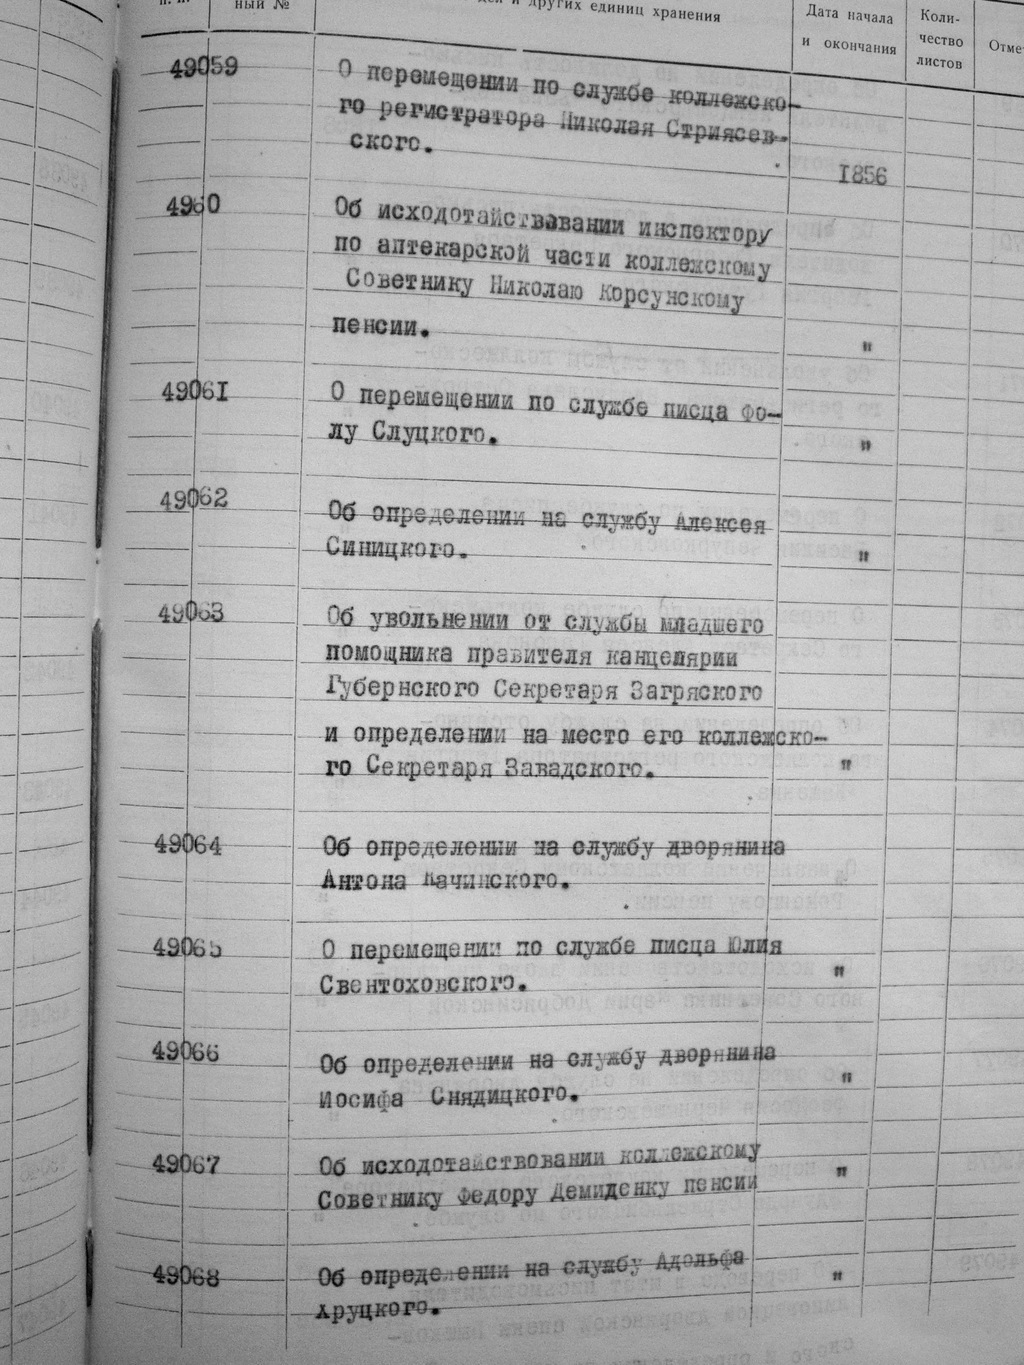 ный №
и других единиц хранения
Дата начала
и окончания
Коли-
чество
листов
Отме
49059
О перемещении по службе коллежско-
го регистратора Николая Стриясев-
ского.
1856
4960
Об исходотайствавании инспектору
по аптекарской части коллежскому
Советнику Николаю Корсунскому
пенсии.
"
49061
О перемещении по службе писца Фо-
лу Слуцкого.
"
49062
Об определении на службу Алексея
Синицкого.
"
49063
Об увольнении от службы младшего
помощника правителя канцелярии
Губернского Секретаря Загряского
и определении на место его коллежско-
го Секретаря Завадского.
"
49064
Об определении на службу дворянина
Антона Качинского.
"
49065
О перемещении по службе писца Юлия
Свентоховского.
"
49066
Об определении на службу дворянина
Иосифа Снядицкого.
"
49067
Об исходотайствовании коллежскому
Советнику Федору Демиденку пенсии
"
49068
Об определении на службу Адольфа
"